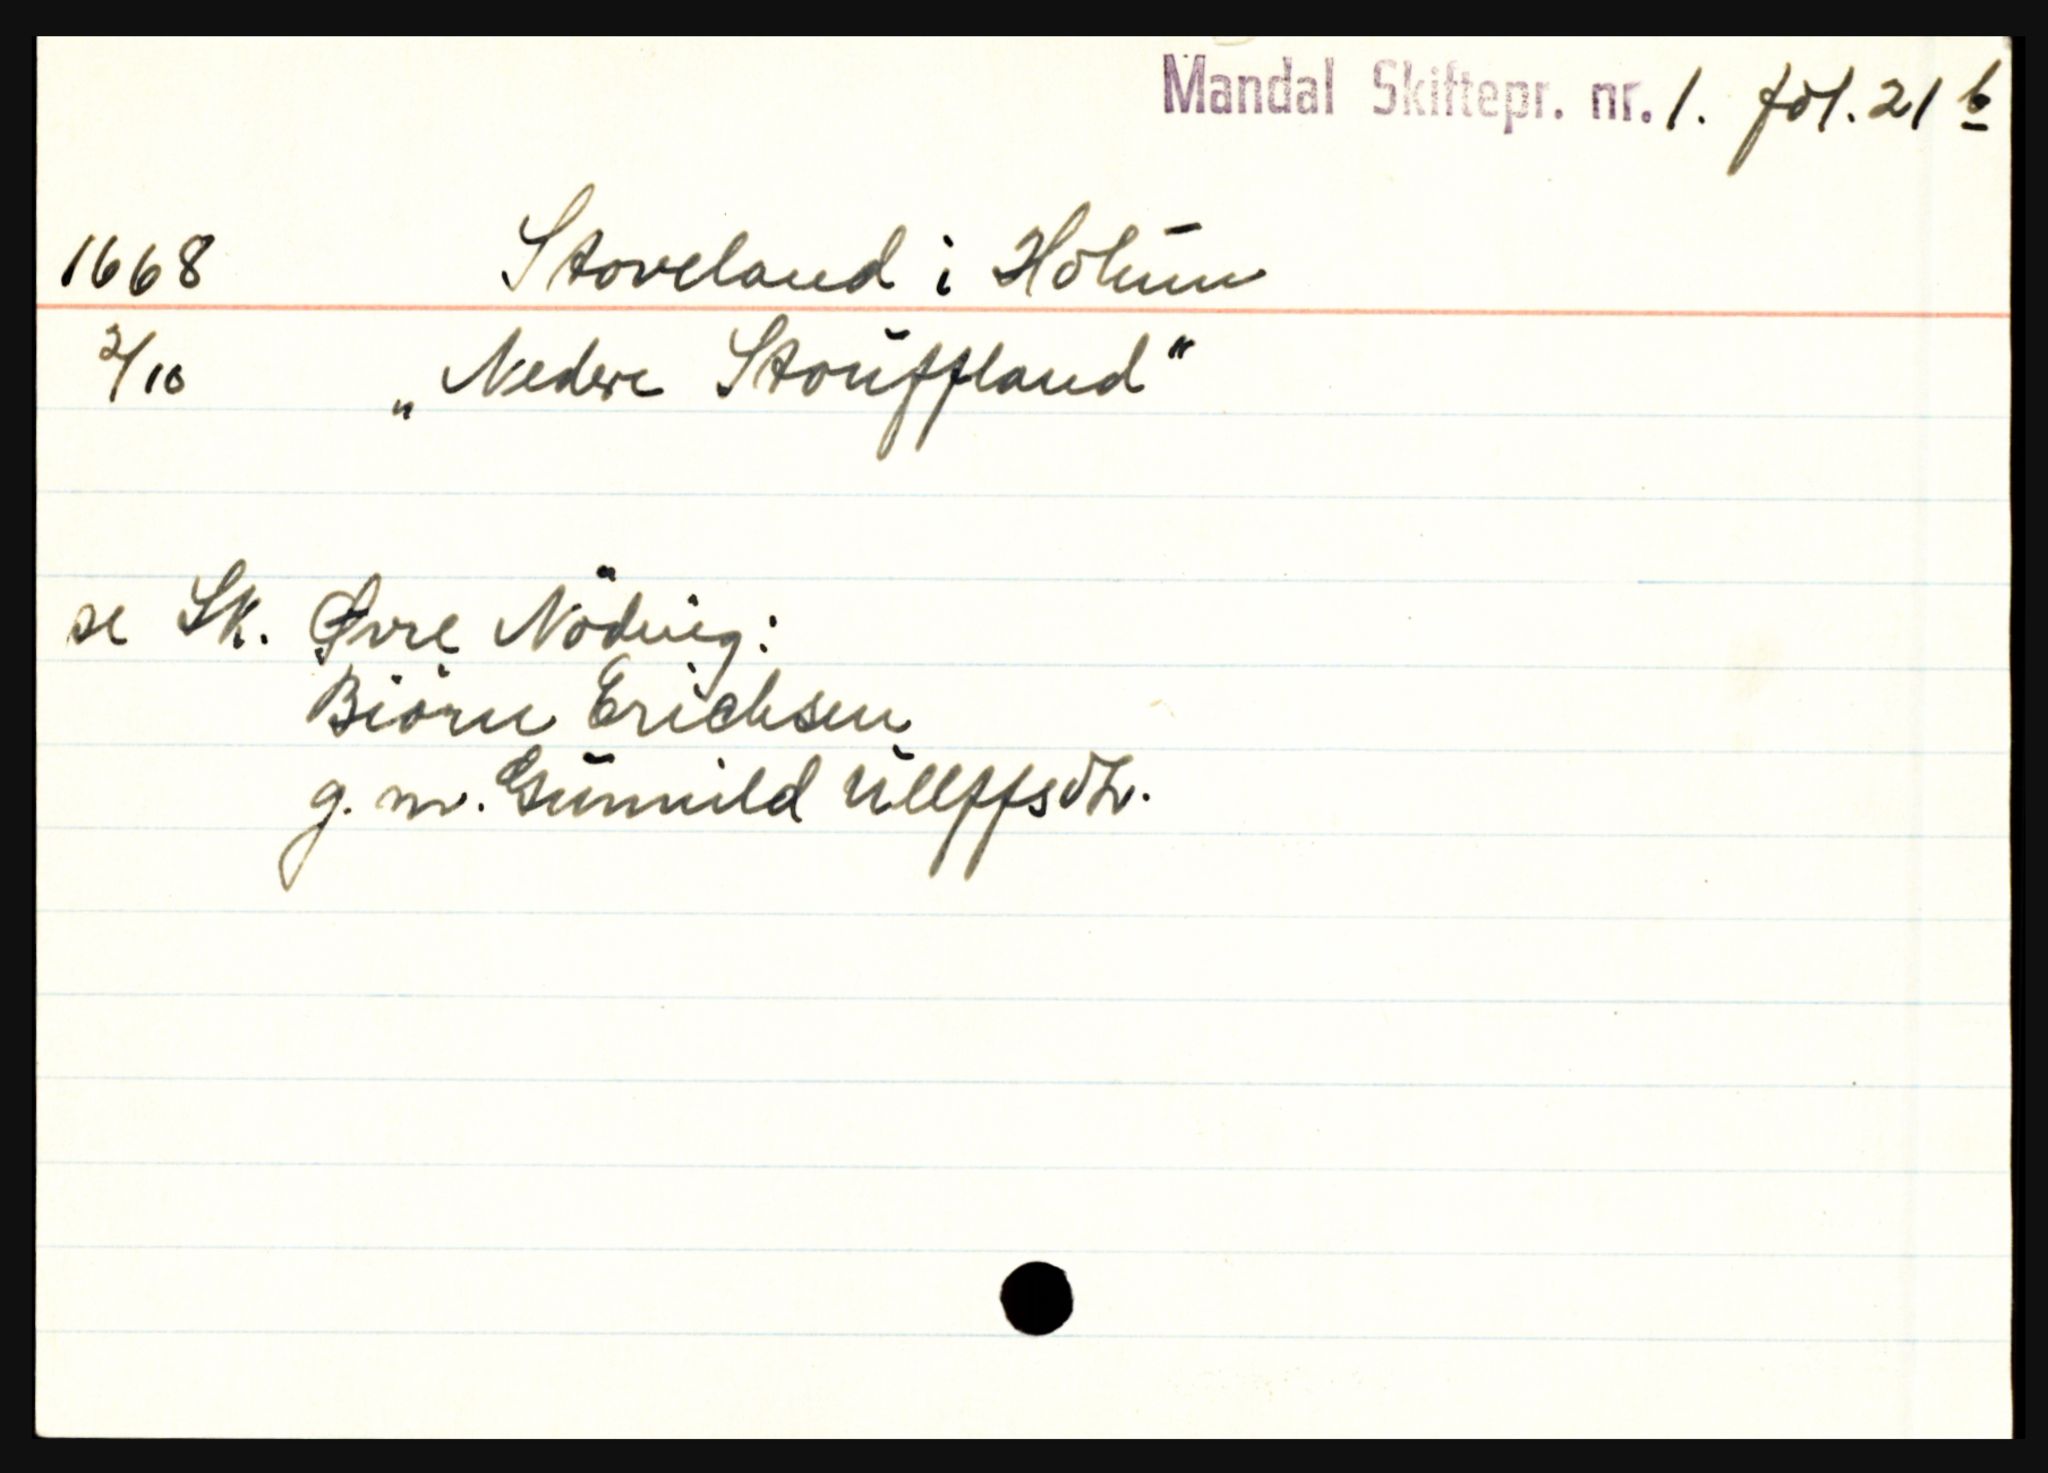 Mandal Skiftepr. nr. 1. fol. 21 b
1668 Stoveland i Holum
2/10 „Nedere Stouffland“
se Sk. Øvre Nödvig:
Biörn Erichsen
g. m. Gunnild Ullffsdtr.